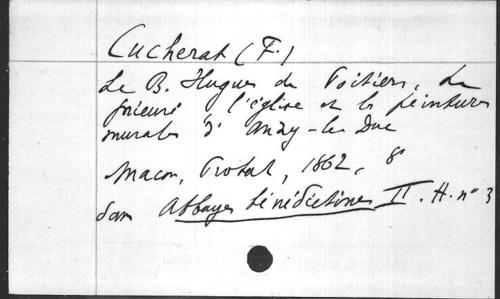 Cucherat (F.)
Le B. Hugues de Poitiers, Le
prieuré l'église et les peintures
murales d'Anzy-le-Duc
Macon, Protat, 1862, 8°
dans Abbayes bénédictines II. H. n° 3